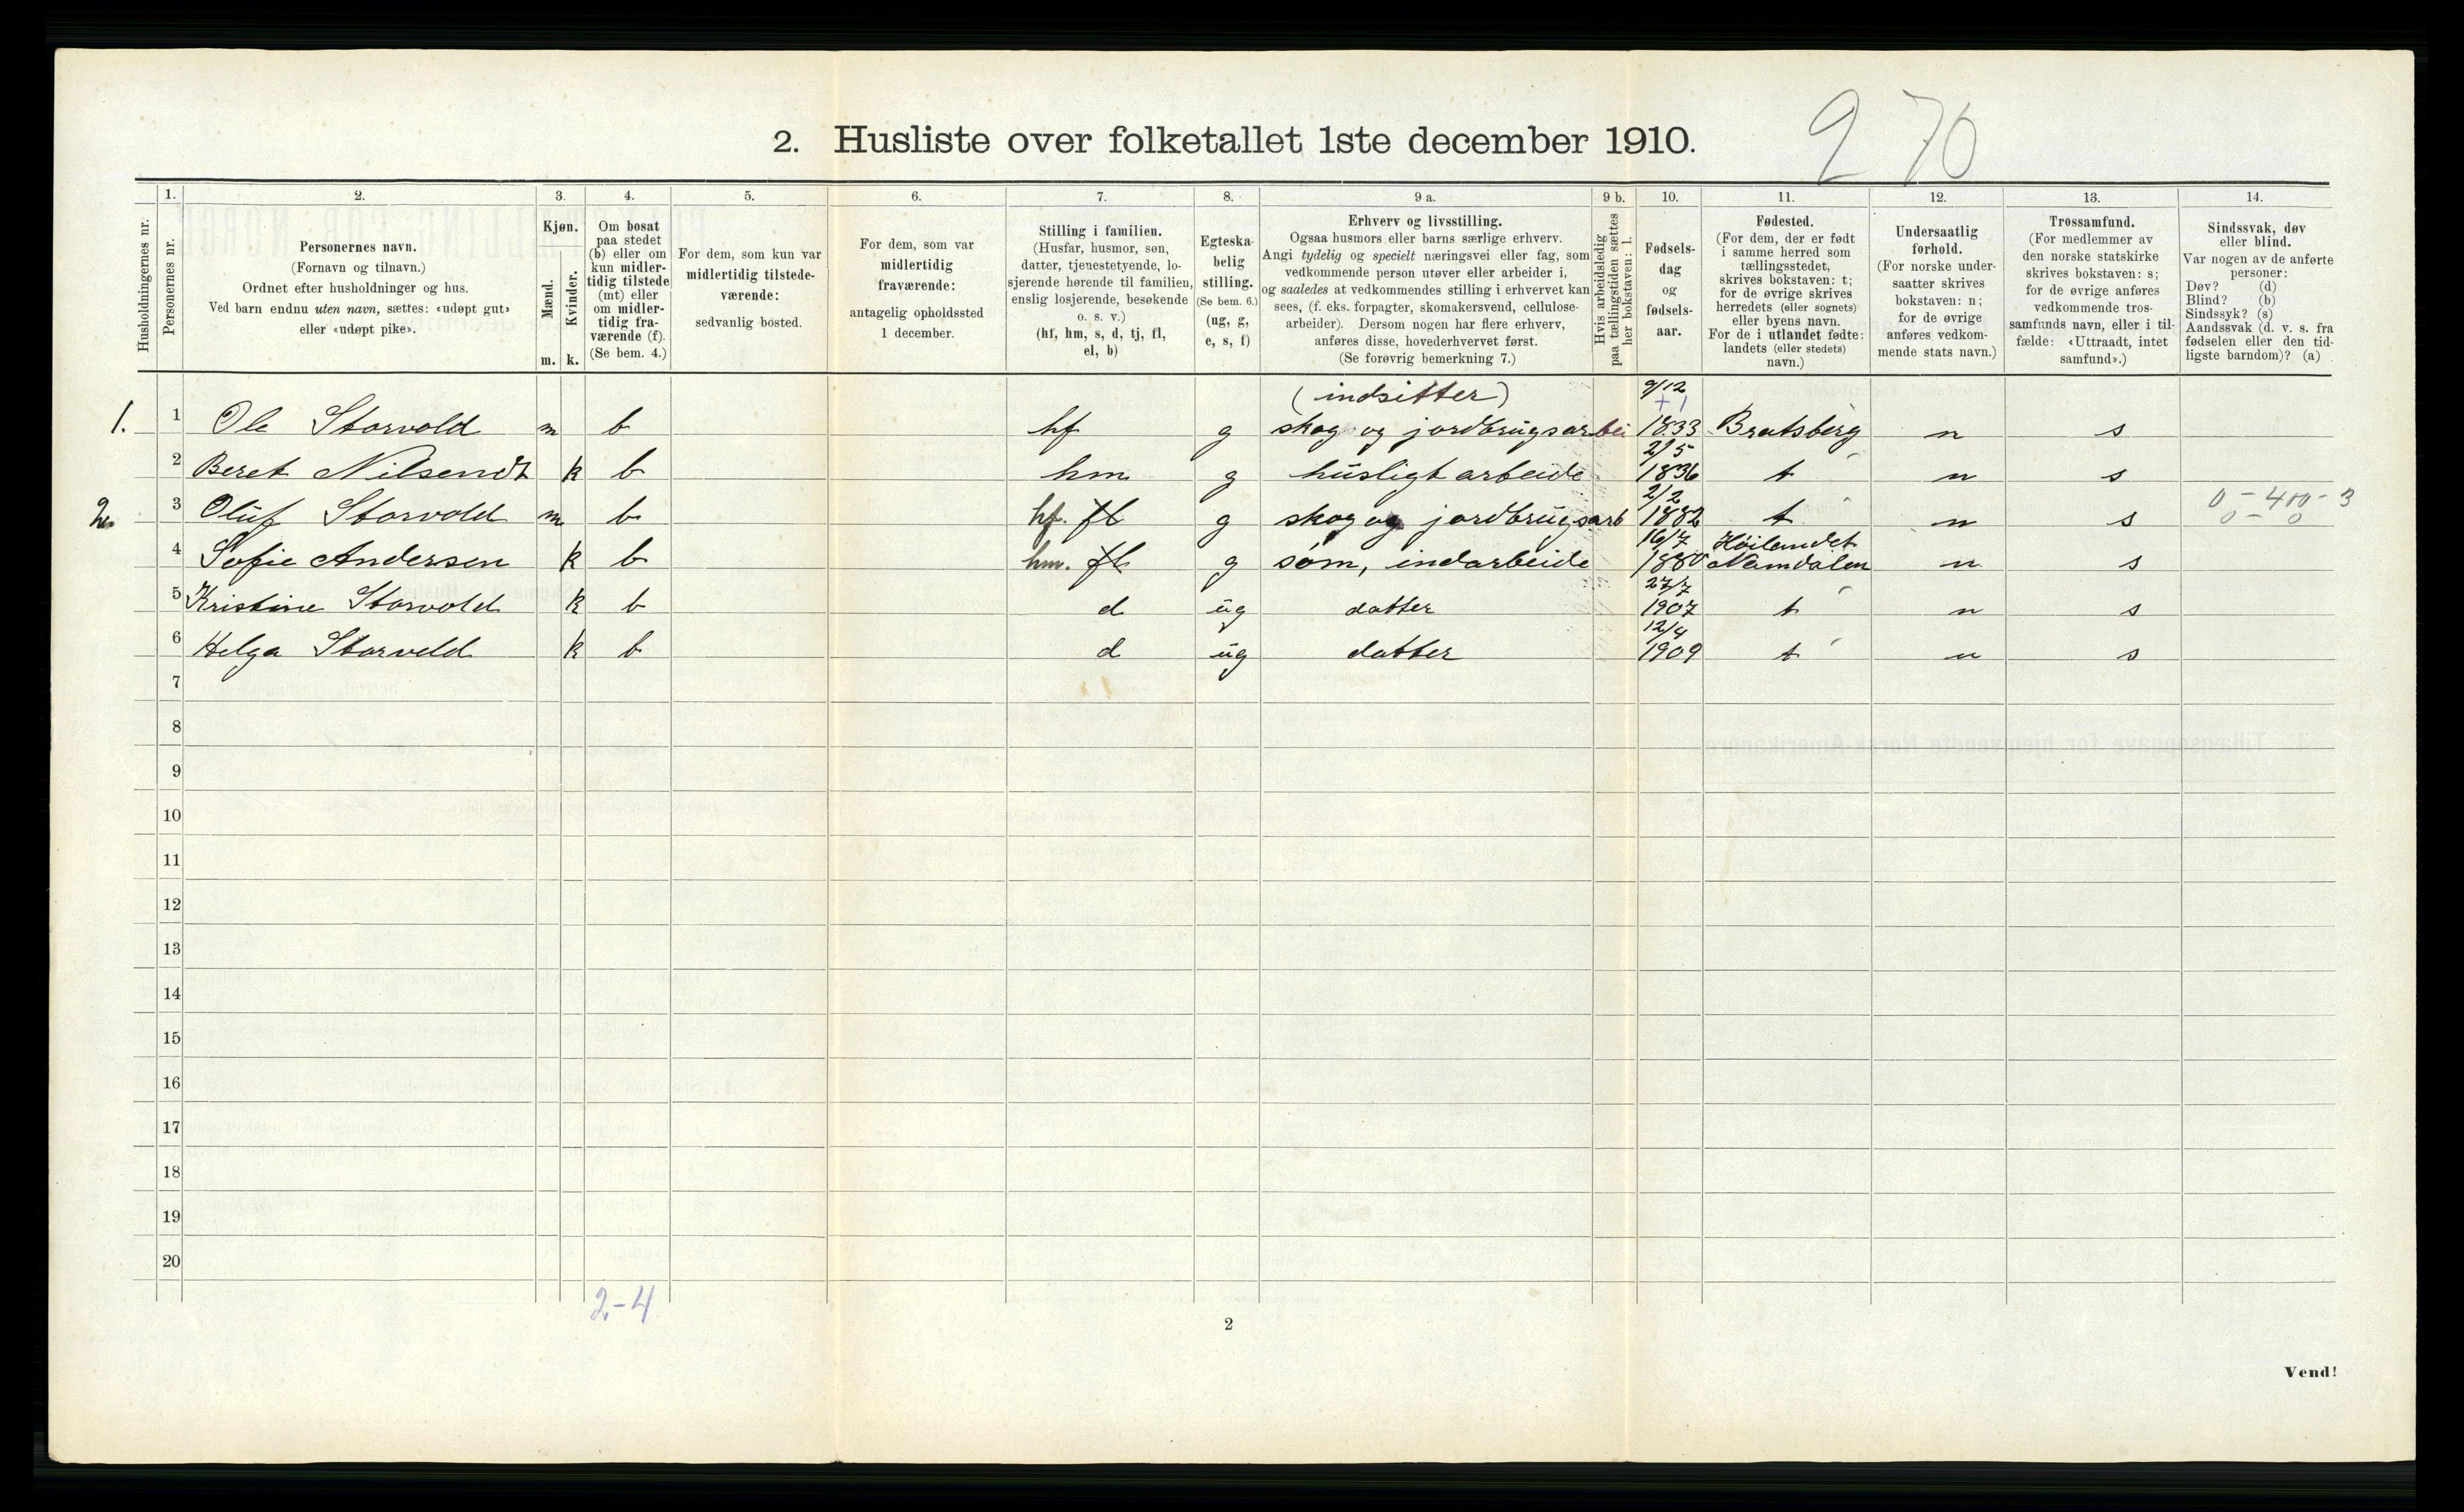 2. Husliste over folketallet 1ste december 1910.
270
Husholdningernes nr.
1. Personernes nr.
2. Personernes navn.
(Fornavn og tilnavn.)
Ordnet efter husholdninger og hus.
Ved barn endnu uten navn, sættes: «udøpt gut»
eller «udøpt pike».
3. Kjøn.
Mænd. m.
Kvinder. k.
4. Om bosat
paa stedet
(b) eller om
kun midler-
tidig tilstede
(mt) eller
om midler-
tidig fra-
værende (f).
(Se bem. 4.)
5. For dem, som kun var
midlertidig tilstede-
værende:
sedvanlig bosted.
6. For dem, som var
midlertidig
fraværende:
antagelig opholdssted
1 december.
7. Stilling i familien.
(Husfar, husmor, søn,
datter, tjenestetyende, lo-
sjerende hørende til familien,
enslig losjerende, besøkende
o. s. v.)
(hf, hm, s, d, tj, fl,
el, b)
8. Egteska-
belig
stilling.
(Se bem. 6.)
(ug, g,
e, s, f)
9 a. Erhverv og livsstilling.
Ogsaa husmors eller barns særlige erhverv.
Angi tydelig og specielt næringsvei eller fag, som
vedkommende person utøver eller arbeider i,
og saaledes at vedkommendes stilling i erhvervet kan
sees, (f. eks. forpagter, skomakersvend, cellulose-
arbeider). Dersom nogen har flere erhverv,
anføres disse, hovederhvervet først.
(Se forøvrig bemerkning 7.)
9 b. Hvis arbeidsledig
paa tællingstiden sættes
her bokstaven: l.
10. Fødsels-
dag
og
fødsels-
aar.
11. Fødested.
(For dem, der er født
i samme herred som
tællingsstedet,
skrives bokstaven: t;
for de øvrige skrives
herredets (eller sognets)
eller byens navn.
For de i utlandet fødte:
landets (eller stedets)
navn.)
12. Undersaatlig
forhold.
(For norske under-
saatter skrives
bokstaven: n;
for de øvrige
anføres vedkom-
mende stats navn.)
13. Trossamfund.
(For medlemmer av
den norske statskirke
skrives bokstaven: s;
for de øvrige anføres
vedkommende tros-
samfunds navn, eller i til-
fælde: «Uttraadt, intet
samfund».)
14. Sindssvak, døv
eller blind.
Var nogen av de anførte
personer:
Døv? (d)
Blind? (b)
Sindssyk? (s)
Aandssvak (d. v. s. fra
fødselen eller den tid-
ligste barndom)? (a)
(indsitter) 9/12
1. 1 Ole Storvold m b hf g skog og jordbrugsarbei 1833 Bratsberg n s
2/5
2 Beret Nilsendt k b hm g husligt arbeide 1836 t n s
2/2
2. 3 Oluf Storvold m b hf. fl g skog og jordbrugsarb 1882 t n s 0-400-3
0-0
16/7 Høilandet
4 Sofie Andersen k b hm. fl g søm, indarbeide 1880 Namdalen n s
27/7
5 Kristine Storvold k b d ug datter 1907 t n s
12/4
6 Helga Storvold k b d ug datter 1909 t n s
7
8
9
10
11
12
13
14
15
16
17
18
19
20
2-4
2
Vend!